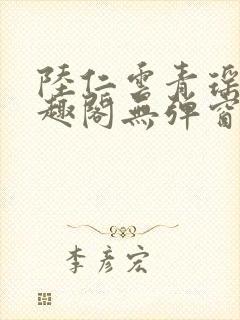 陸仁雲青瑤
趣閣無彈窗
李彥宏